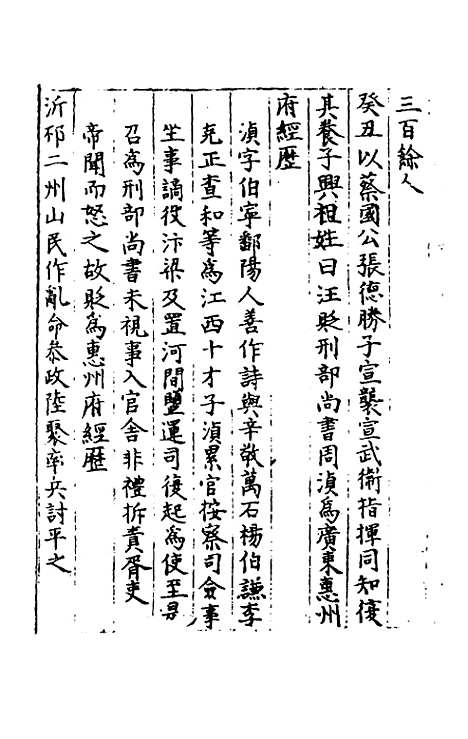 三百餘人
癸丑以蔡國公張德勝子宣襲宣武衛指揮同知復
其養子興祖姓曰汪貶刑部尚書周湞為廣東惠州
府經歷
湞字伯寧鄱陽人善作詩與辛敬萬石楊伯謙李
克正查和等為江西十才子湞累官按察司僉事
坐事謫役汴梁及置河間鹽運司復起為使至是
召為刑部尚書未視事入官舍非禮拆責胥吏
帝聞而怒之故貶為惠州府經歷
沂邳二州山民作亂命叅政陸聚率兵討平之